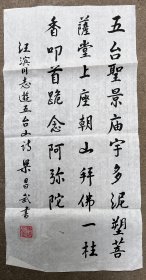 五台聖景庙宇多泥塑菩
薩堂上座朝山拜佛一柱
香叩首跪念阿弥陀
汪滨同志遊五台山诗 梁昌武書